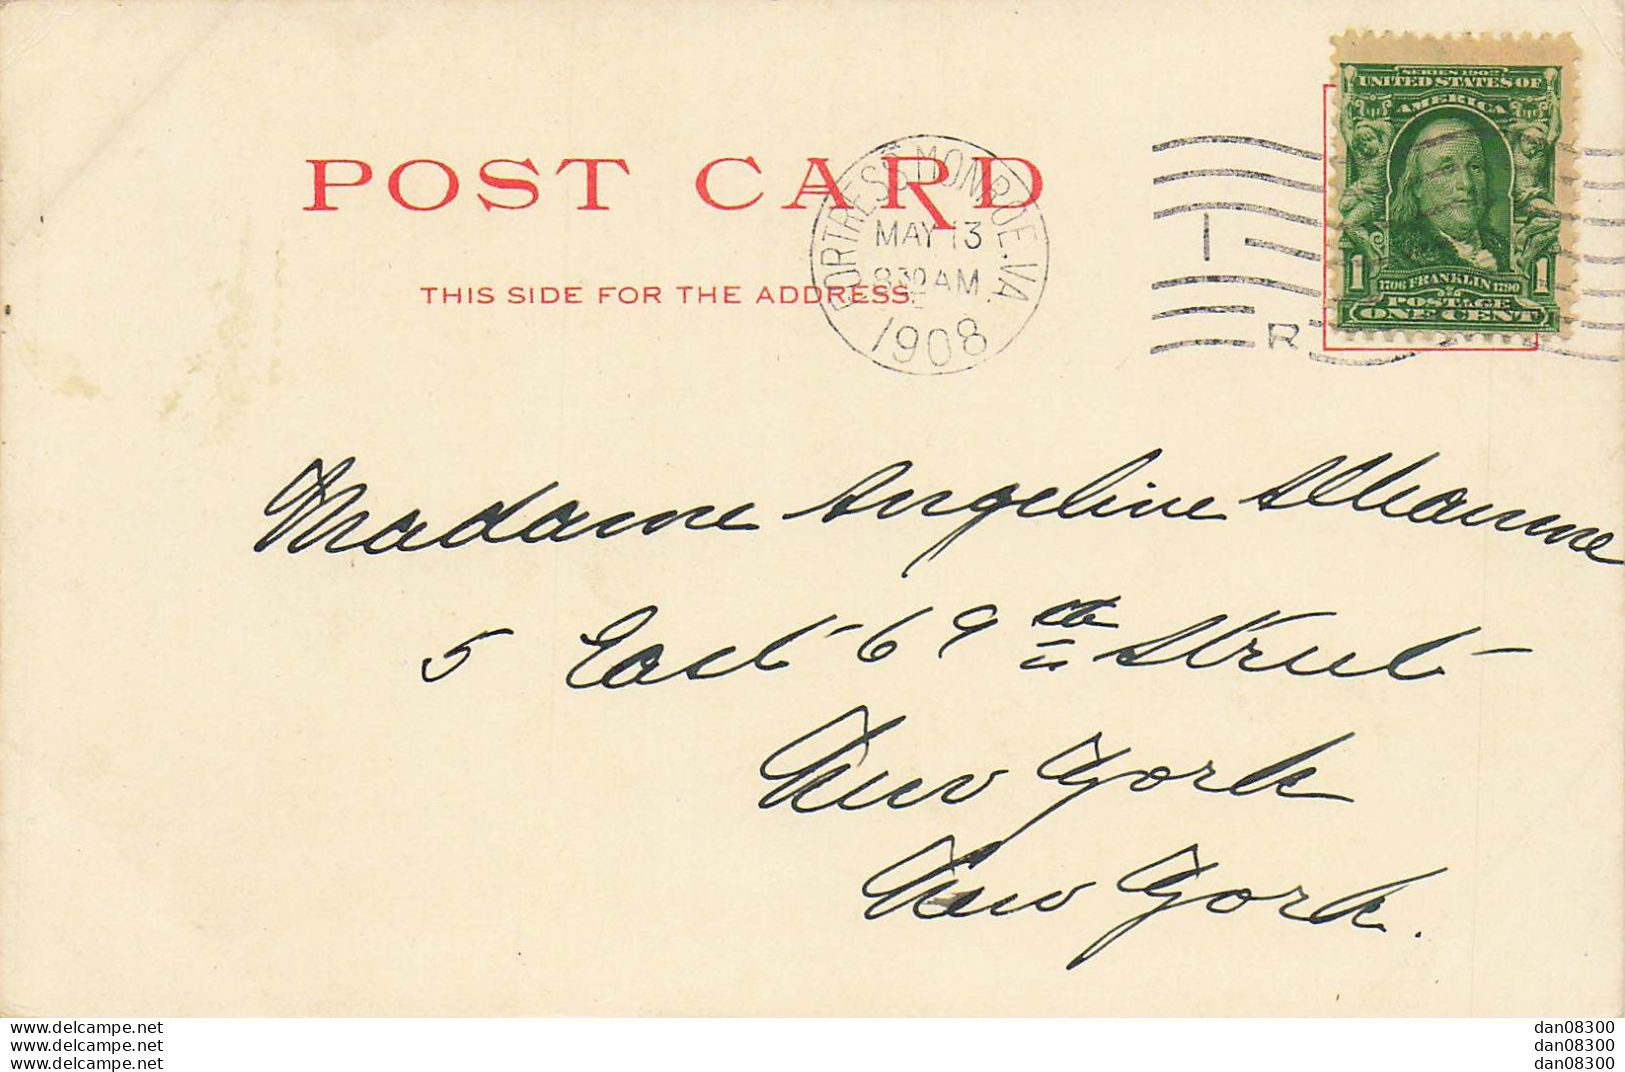 SERIES 1902
UNITED STATES OF
AMERICA
POST CARD
FORTRESS MONROE. VA.
MAY 13
830 AM
1908
1
R
THIS SIDE FOR THE ADDRESS.
1 1
1706 FRANKLIN 1790
POSTAGE
ONE CENT
Madame Angeline
5 East 69th Street
New York
New York.
www.delcampe.net
www.delcampe.net
www.delcampe.net
dan08300
dan08300
dan08300